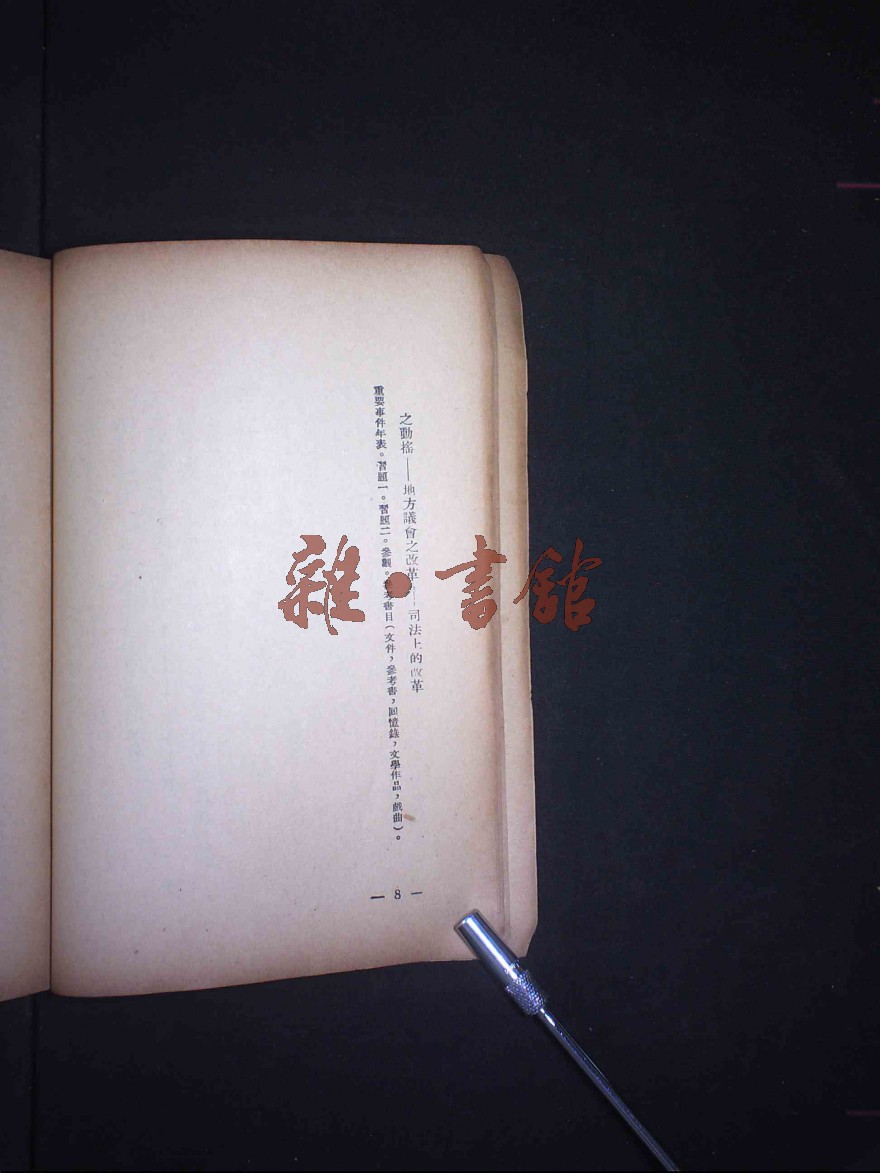 之動搖——地方議會之改革——司法上的改革
重要事件年表。習題一。習題二。參觀。參考書目(文件,參考書,回憶錄,文學作品,戲曲)。
— 8 —
雜·書館